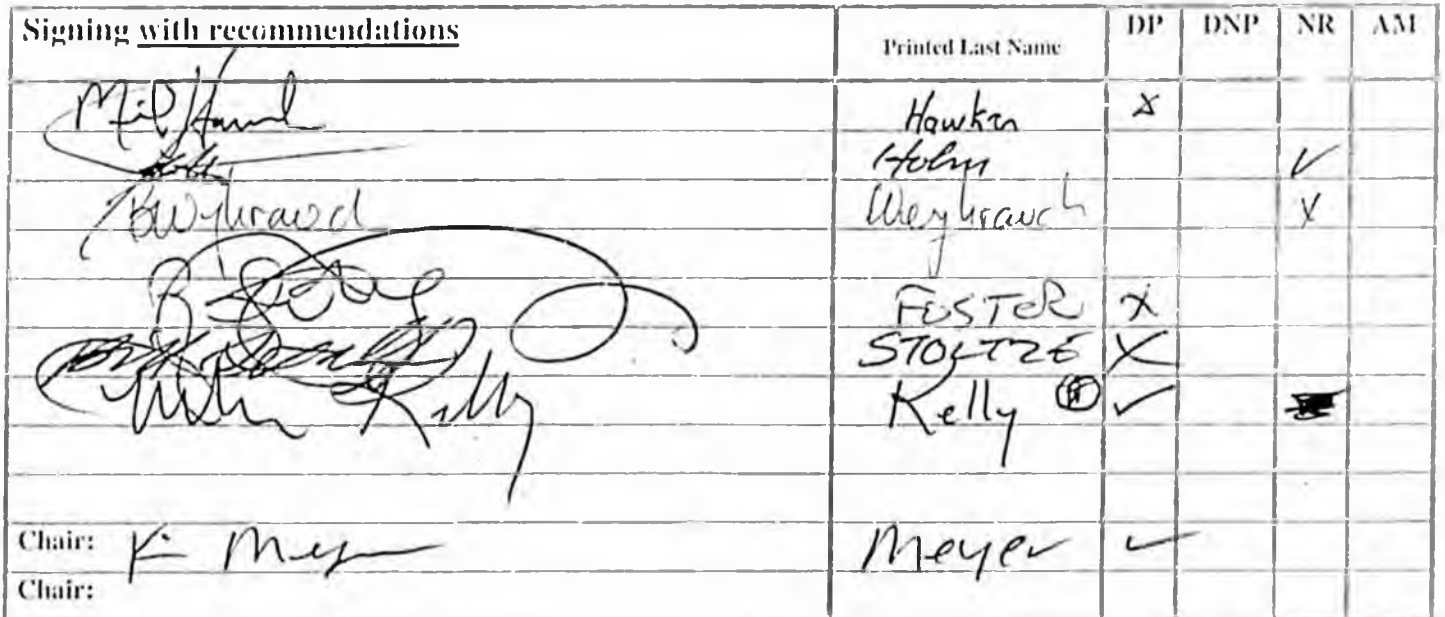 Signing with recommendations Printed Last Name DP DNP NR AM
Hawkin X
Holm ✓
Weyhrauch X
FOSTER X
STOLTZE X
Kelly Kelly ✓
Chair: K Meyer Meyer ✓
Chair: